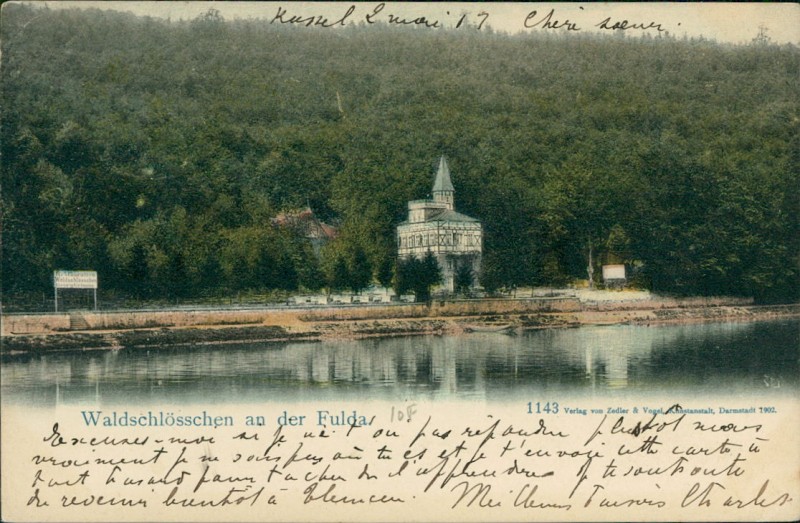 Kassel 2 mai 07 Chère soeur.
Waldschlösschen an der Fulda.
10F
1143 Verlag von Zedler & Vogel, Kunstanstalt, Darmstadt 1902.
Excusez-moi si je n'ai pas répondu plus tôt mais
vraiment je ne sais pas où tu es et je t'envoie cette carte à
tout hasard pour tacher de l'apprendre. je souhaite
de revenir bientôt à Tlemcen. Meilleurs baisers Charles